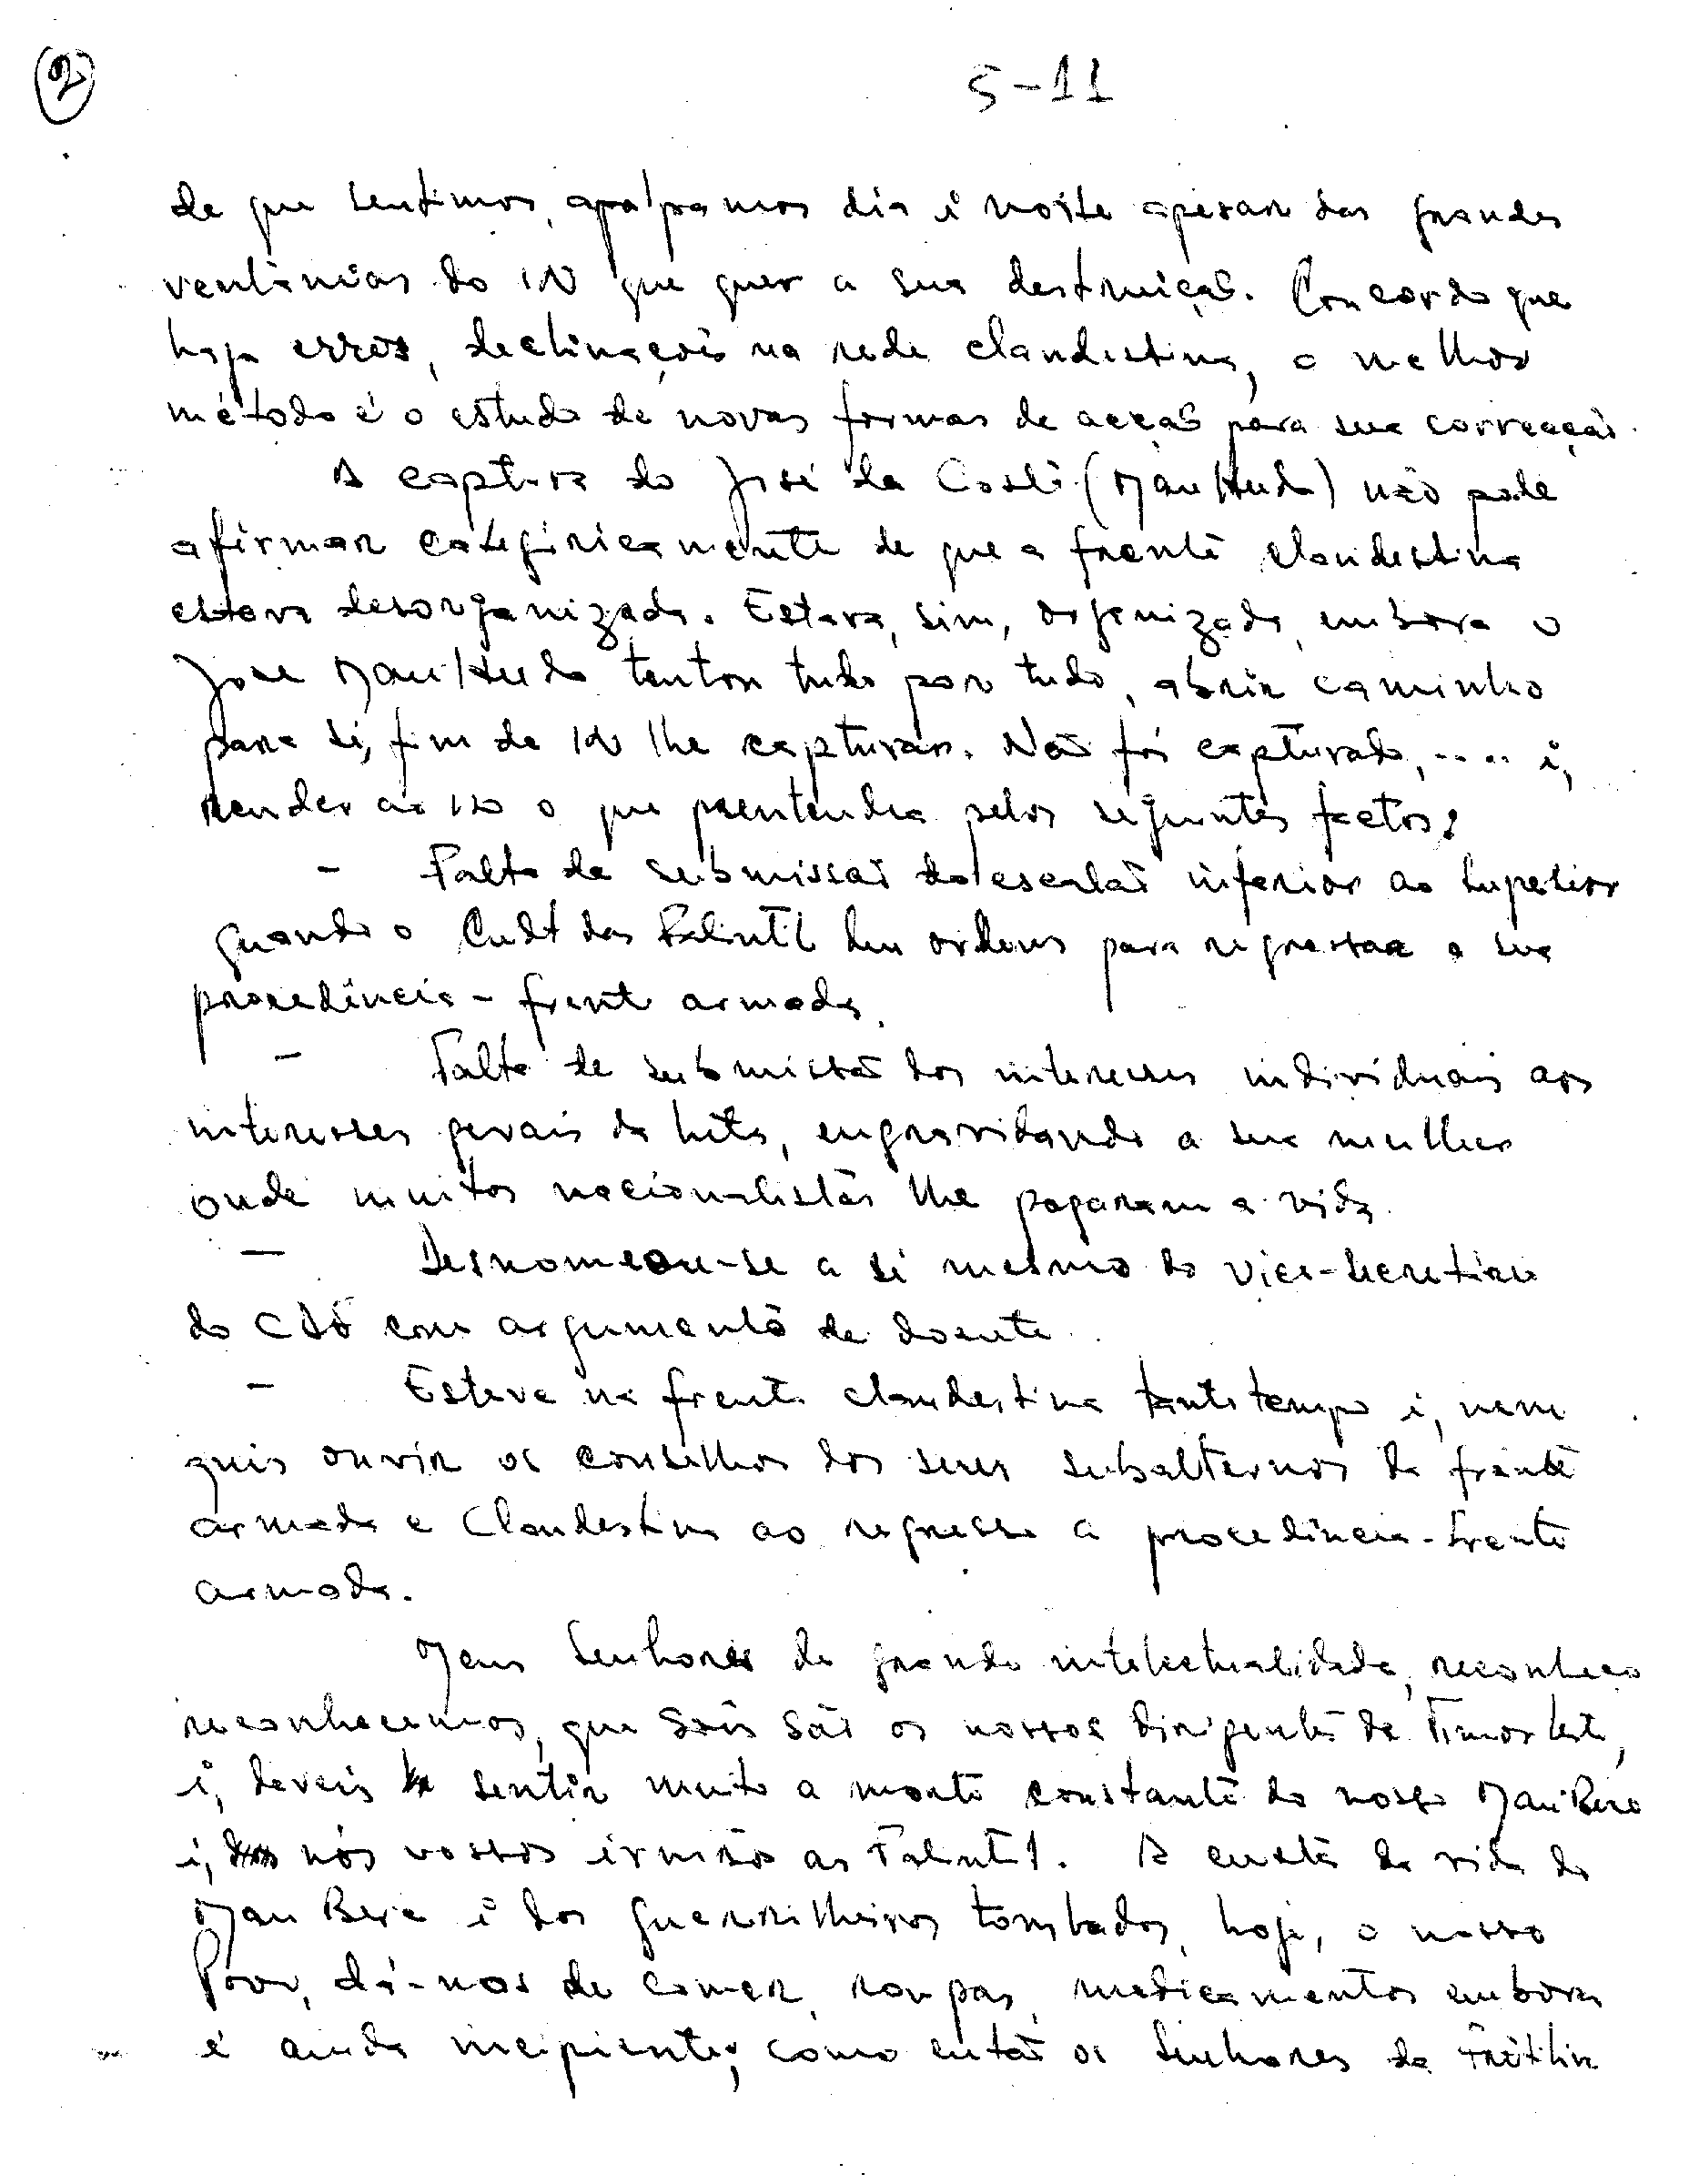 2
5-11
de que sentimos, apalpamos dia i noite apesar das grandes
ventânias do IN que quer a sua destruição. Concordo que
haja erros, declinações na rede clandestina, o melhor
método é o estudo de novas formas de acção para sua correcção.
A captura do José da Costa (Mau Hudo) não pode
afirmar categóricamente de que a frente clandestina
estava desorganizada. Estava, sim, organizada, embora o
José Mau Hudo tentou tudo por tudo, abrir caminho
para si, fim de IN lhe capturar. Não foi capturado, .... i,
render ao IN o que pretendia pelos seguintes factos:
- Falta de submissão do escalão inferior ao superior
quando o Cmdt das Falintil deu ordens para regressar a sua
procedência - frente armada.
- Falta de submissão dos interesses individuais aos
interesses gerais da luta, engravidando a sua mulher
onde muitos nacionalistas lhe pagaram a vida.
- Desnomeou-se a si mesmo do vice-secretário
do com argumento de doente.
- Esteve na frente clandestina tanto tempo i, nem
quis ouvir os conselhos dos seus subalternos da frente
armada e Clandestina ao regresso a procedência - frente
armada.
Meus Senhores de grande intelectualidade, reconheço
reconhecemos, que sois são os nossos dirigentes de Timor Leste,
i, deveis sentir muito a morte constante do nosso Mau Bere
i, nós vossos irmãos as Falintil. A custa da vida do
Mau Bere i dos guerrilheiros tombados, hoje, o nosso
Povo, dá-nos de comer, roupas, medicamentos embora
é ainda incipiente; como então os Senhores da Fretilin